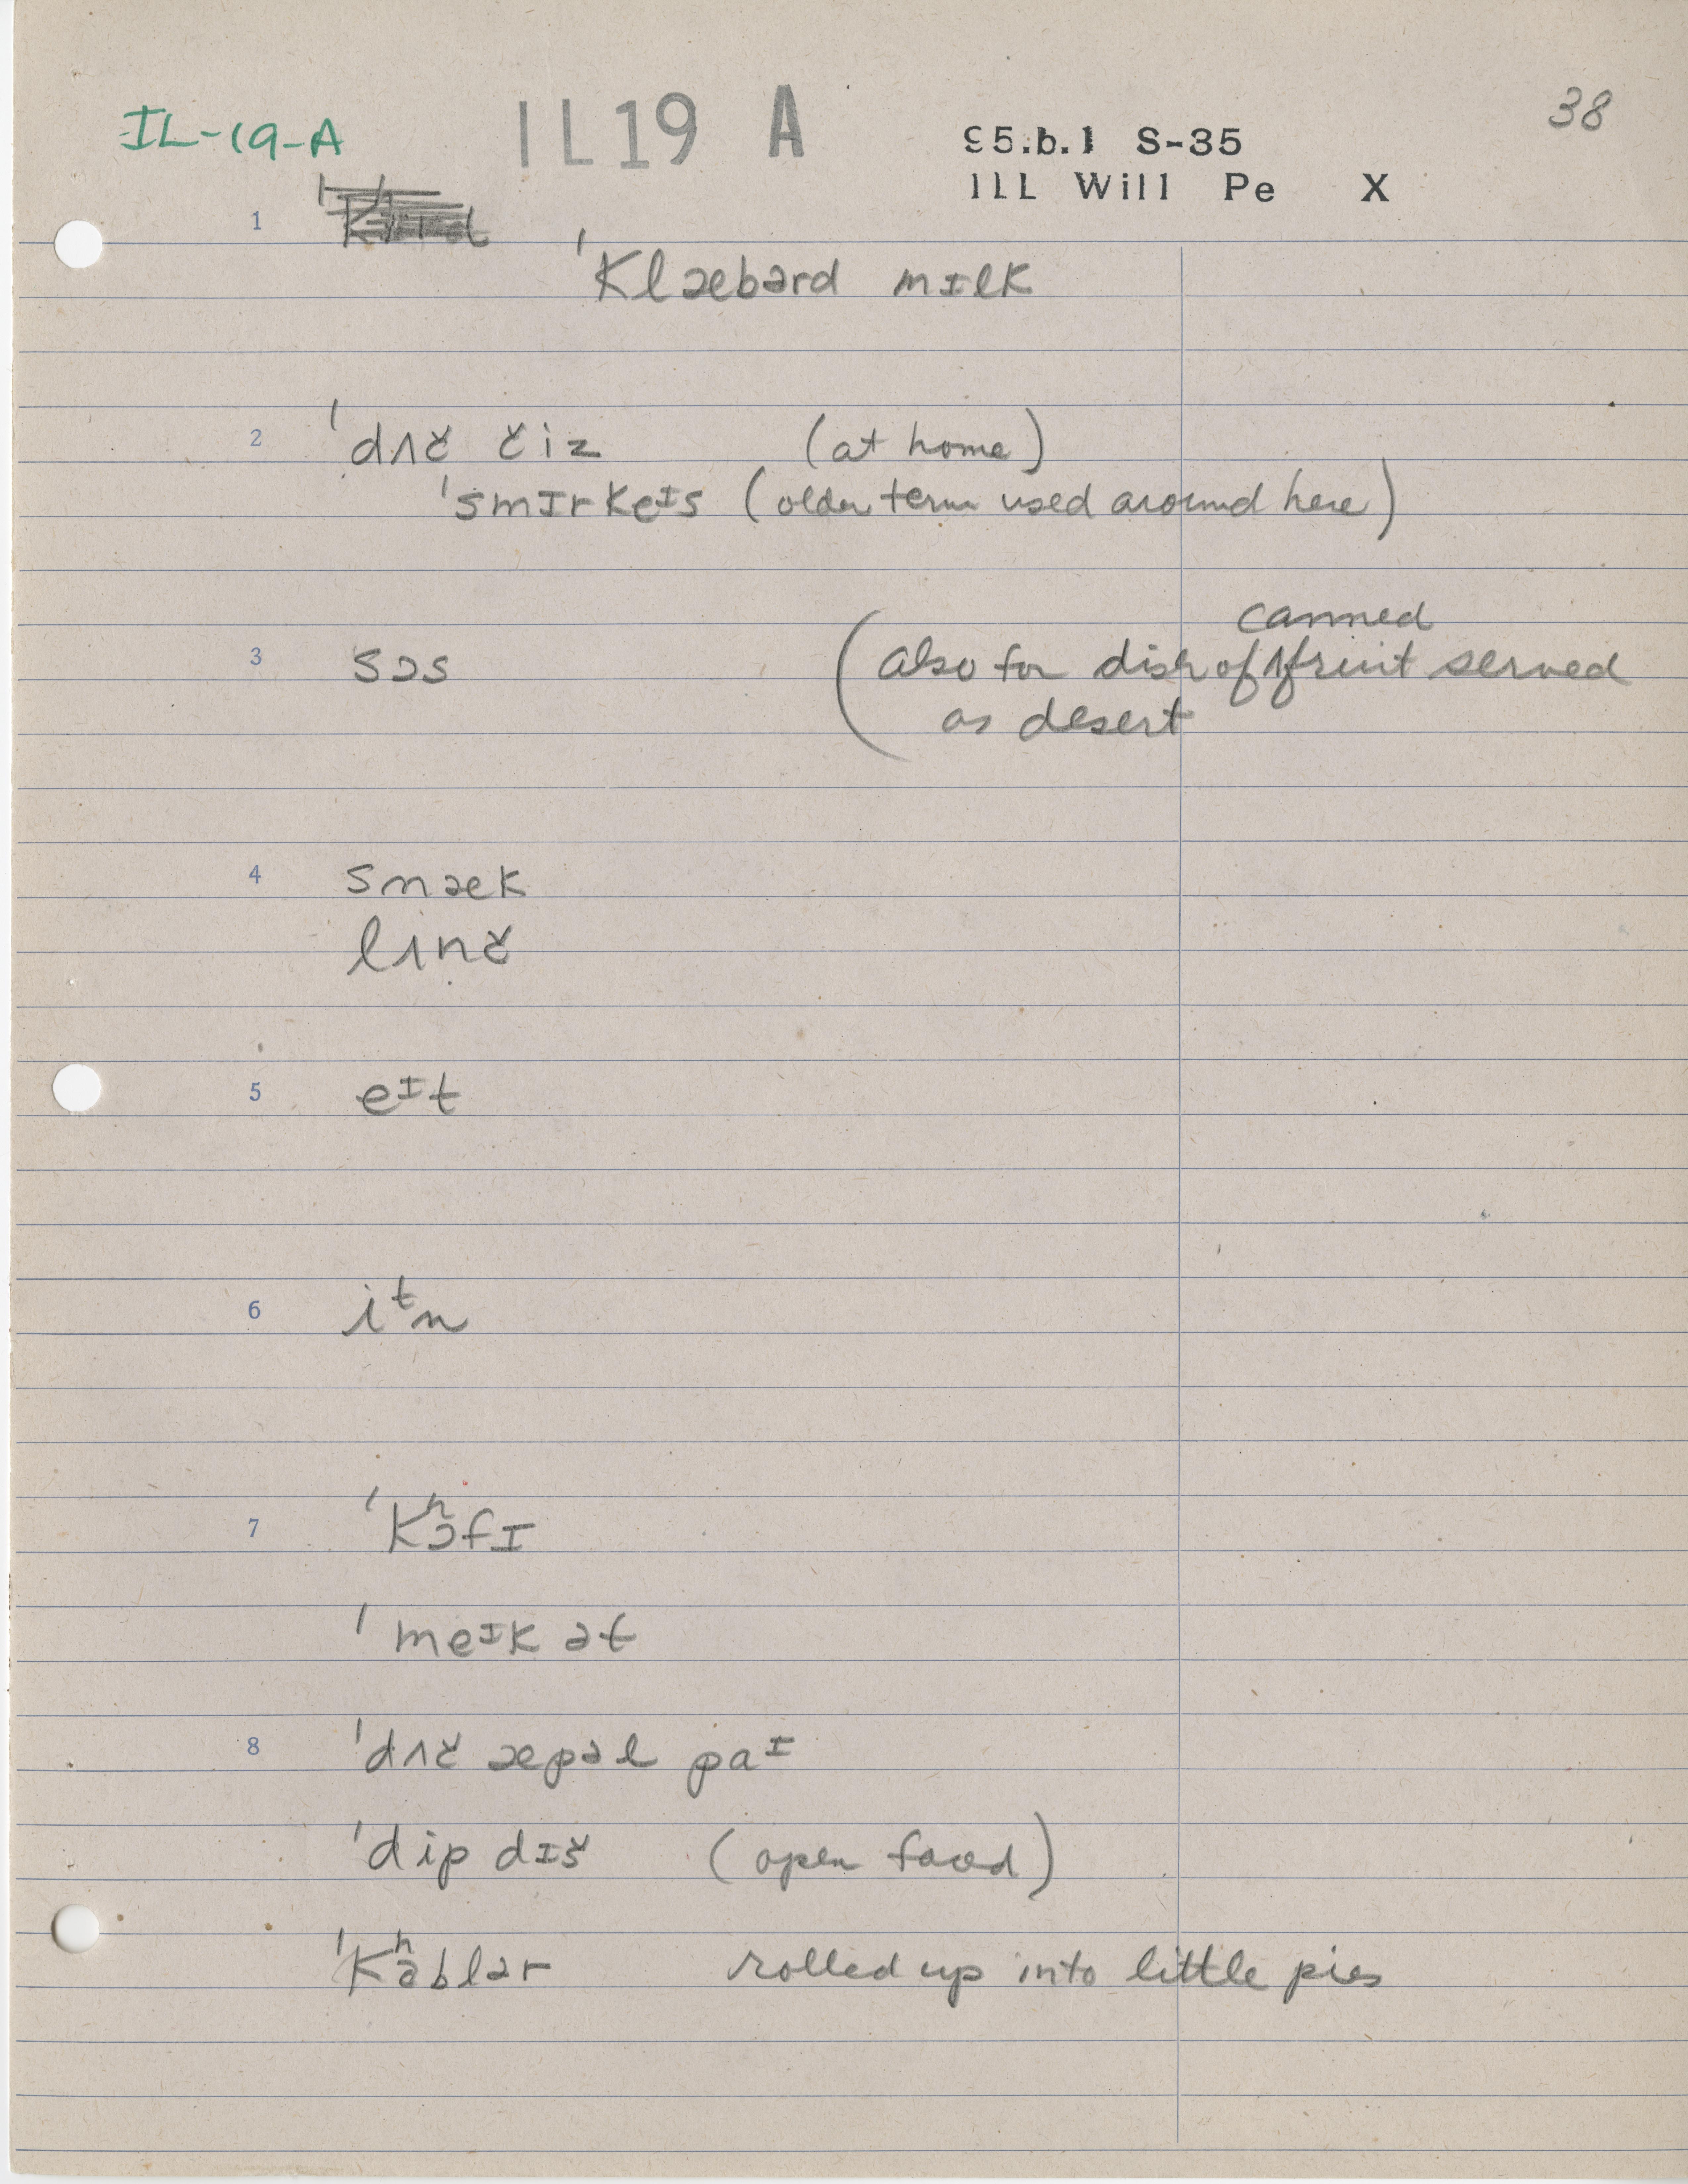 IL-19-A IL19 A 95.b.1 S-35 38
ILL Will Pe X
1
ˈklæbərd mɪlk
2 ˈdʌč čiz (at home)
ˈsmɪrkeᴵs (older term used around here)
canned
3 sɔs (also for dish of ^ fruit served
as desert
4 snæk
lʌnč
5 eᴵt
6 iᵗn
7 ˈkʰɔfɪ
ˈmeᴵk ət
8 ˈdʌč æpəl paᴵ
ˈdip dɪš (open faced)
ˈkʰablər rolled up into little pies